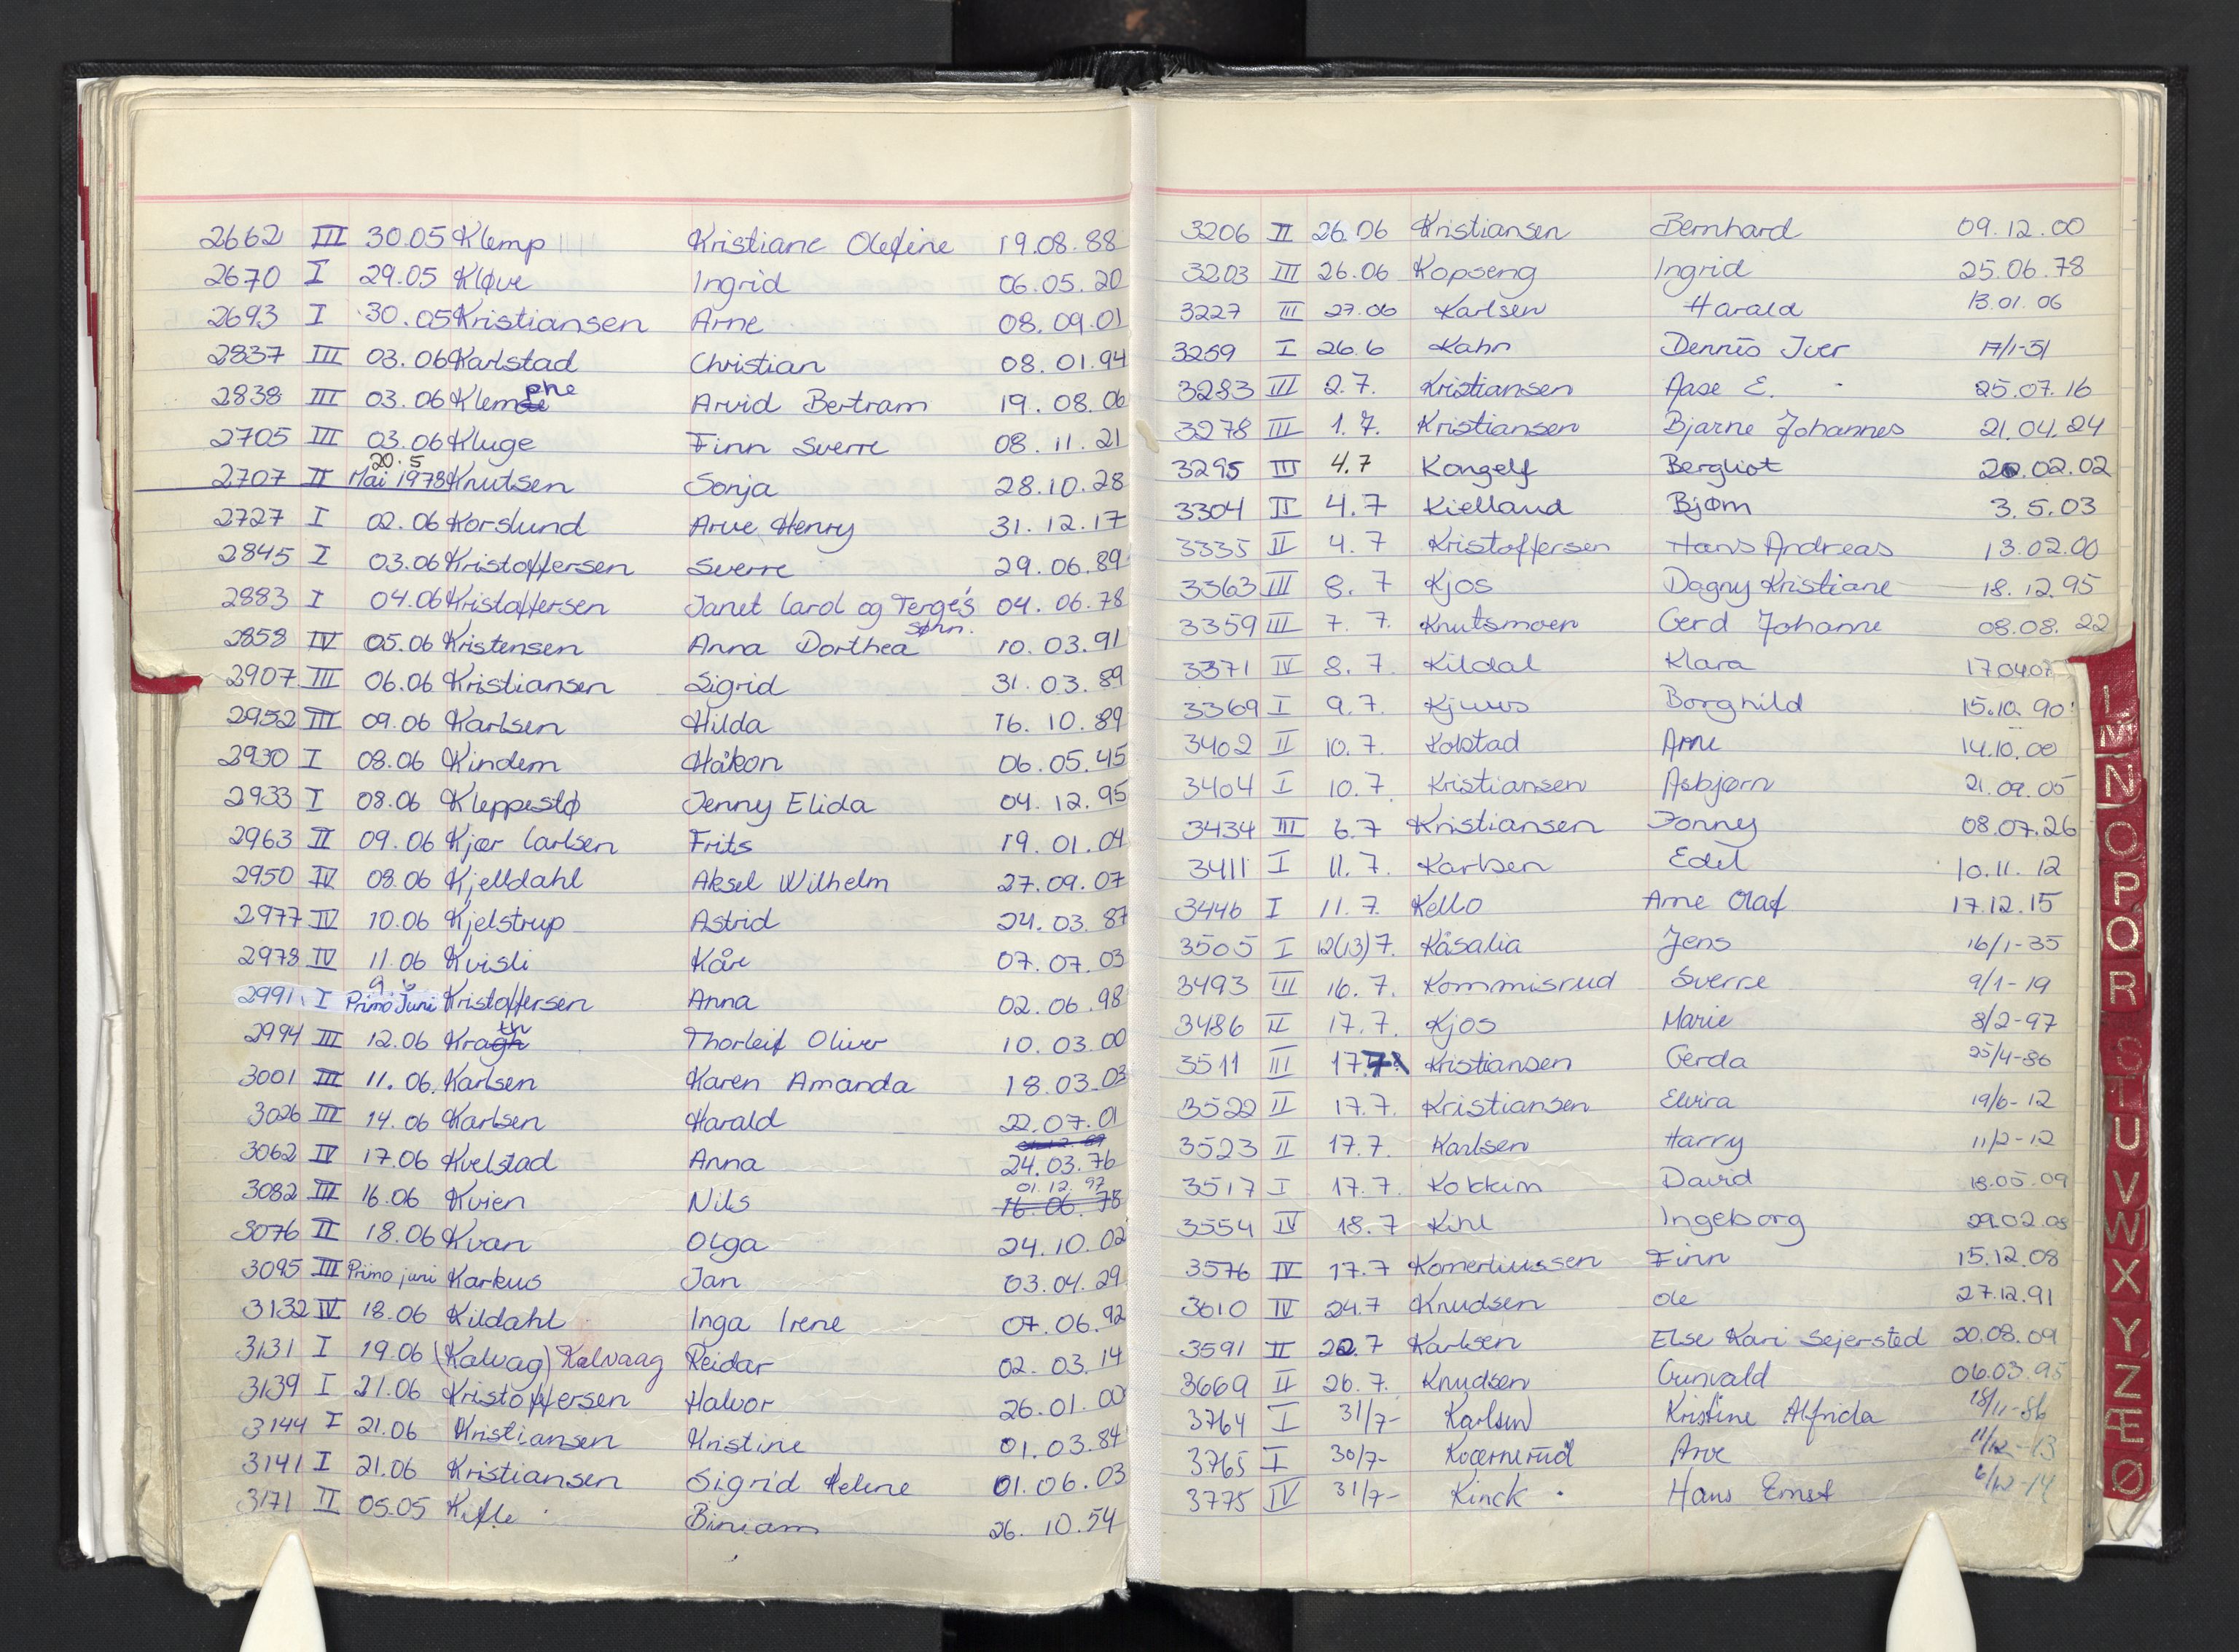 2662 III 30.05 Klemp Kristiane Olefine 19.08.88
2670 I 29.05 Kløve Ingrid 06.05.20
2693 I 30.05 Kristiansen Arne 08.09.01
2837 III 03.06 Karlstad Christian 08.01.94
2838 III 03.06 Klemphe Arvid Bertram 19.08.06
2705 III 03.06 Kluge Finn Sverre 08.11.21
20.5
2707 II Mai 1978 Knutsen Sonja 28.10.28
2727 I 02.06 Korslund Arve Henry 31.12.17
2845 I 03.06 Kristoffersen Sverre 29.06.89
2883 I 04.06 Kristoffersen Janet Carol og Terge's 04.06.78
sønn.
2858 IV 05.06 Kristensen Anna Dorthea 10.03.91
2907 III 06.06 Kristiansen Sigrid 31.03.89
2952 III 09.06 Karlsen Hilda 16.10.89
2930 I 08.06 Kindem Håkon 06.05.45
2933 I 08.06 Kleppestø Jenny Elida 04.12.95
2963 II 09.06 Kjær Carlsen Frits 19.01.04
2950 IV 08.06 Kjelldahl Aksel Wilhelm 27.09.07
2977 IV 10.06 Kjelstrup Astrid 24.03.87
2978 IV 11.06 Kvisli Kåre 07.07.03
9.6
2991 I Primo Juni Kristoffersen Anna 02.06.98
th
2994 III 12.06 Kragh Thorleif Oliver 10.03.00
3001 III 11.06. Karlsen Karen Amanda 18.03.03
3026 III 14.06 Karlsen Harald 22.07.01
3062 IV 17.06 Kvelstad Anna 24.03.76
01.12.97
3082 III 16.06 Kvien Nils 16.06.78
3076 II 18.06 Kvan Olga 24.10.02
3095 III Primo juni Karkus Jan 03.04.29
3132 IV 18.06 Kildahl Inga Irene 07.06.92
3131 I 19.06 (Kalvag) Kalvaag Reidar 02.03.14
3139 I 21.06 Kristoffersen Halvor 26.01.00
3144 I 21.06 Kristiansen Kristine 01.03.84
3141 I 21.06 Kristiansen Sigrid Helene 01.06.03
3171 II 05.05 Kifle Biniam 26.10.54
3206 II 26.06 Kristiansen Bernhard 09.12.00
3203 III 26.06 Kopseng Ingrid 25.06.78
3227 III 27.06 Karlsen Harald 13.01.06
3259 I 26.6 Kahn Dennis Iver 17/1-51
3283 III 2.7. Kristiansen Aase E. 25.07.16
3278 III 1.7. Kristiansen Bjarne Johannes 21.04.24
3295 III 4.7 Kongelf Bergliot 20.02.02
3304 II 4.7 Kielland Bjørn 3.5.03
3335 II 4.7 Kristoffersen Hans Andreas 13.02.00
3363 III 8.7 Kjos Dagny Kristiane 18.12.95
3359 III 7.7. Knutsmoen Gerd Johanne 08.08.22
3371 IV 8.7. Kildal Klara 17.04.07
3369 I 9.7. Kjuus Borghild 15.10.90
3402 II 10.7. Kolstad Arne 14.10.00
3404 I 10.7. Kristiansen Asbjørn 21.09.05
3434 III 6.7 Kristiansen Jonny 08.07.26
3411 I 11.7. Karlsen Edel 10.11.12
3446 I 11.7. Kello Arne Olaf 17.12.15
3505 I 12(13)7. Kåsalia Jens 16/1-35
3493 III 16.7. Kommisrud Sverre 9/1-19
3486 II 17.7. Kjos Marie 8/2-97
3511 III 17.7. Kristiansen Gerda 25/4-86
3522 II 17.7. Kristiansen Elvira 19/6-12
3523 II 17.7. Karlsen Harry 11/2-12
3517 I 17.7. Kokkim David 18.05.09
3554 IV 18.7 Kihl Ingeborg 29.02.08
3576 IV 17.7 Korneliussen Finn 15.12.08
3610 IV 24.7 Knudsen Ole 27.12.91
3591 II 22.7 Karlsen Else Kari Sejersted 20.08.09
3669 II 26.7. Knudsen Gunvald 06.03.95
3764 I 31/7- Karlsen Kristine Alfrida 18/11-86
3765 I 30/7- Kværnerud Arve 11/12-13
3775 IV 31/7- Kinck Hans Ernst 6/12-14
L
M
N
O
P
Q
R
S
T
U
V
W
X
Y
Z
Æ
Ø